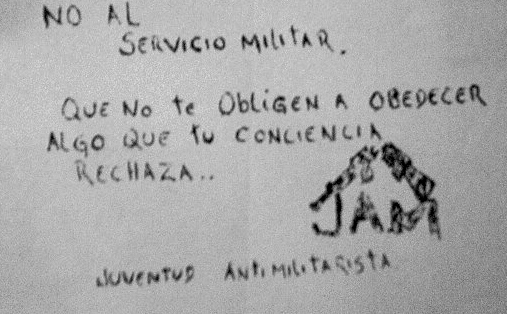 NO AL
SERVICIO MILITAR.
QUE NO te OBLIGEN A OBEDECER
ALGO QUE tU CONCIENCIA
RECHAZA..
JAM
JUVENTUD ANTIMILITARISTA